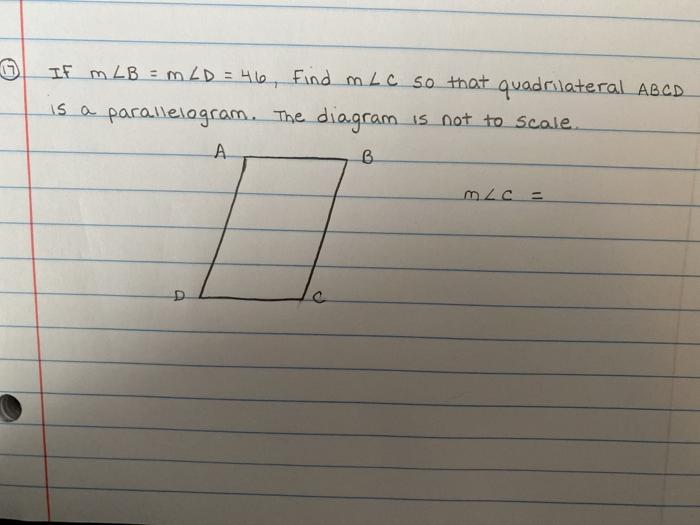 17 If m∠B = m∠D = 46, Find m∠C so that quadrilateral ABCD
is a parallelogram. The diagram is not to scale.
A B
m∠C =
D C